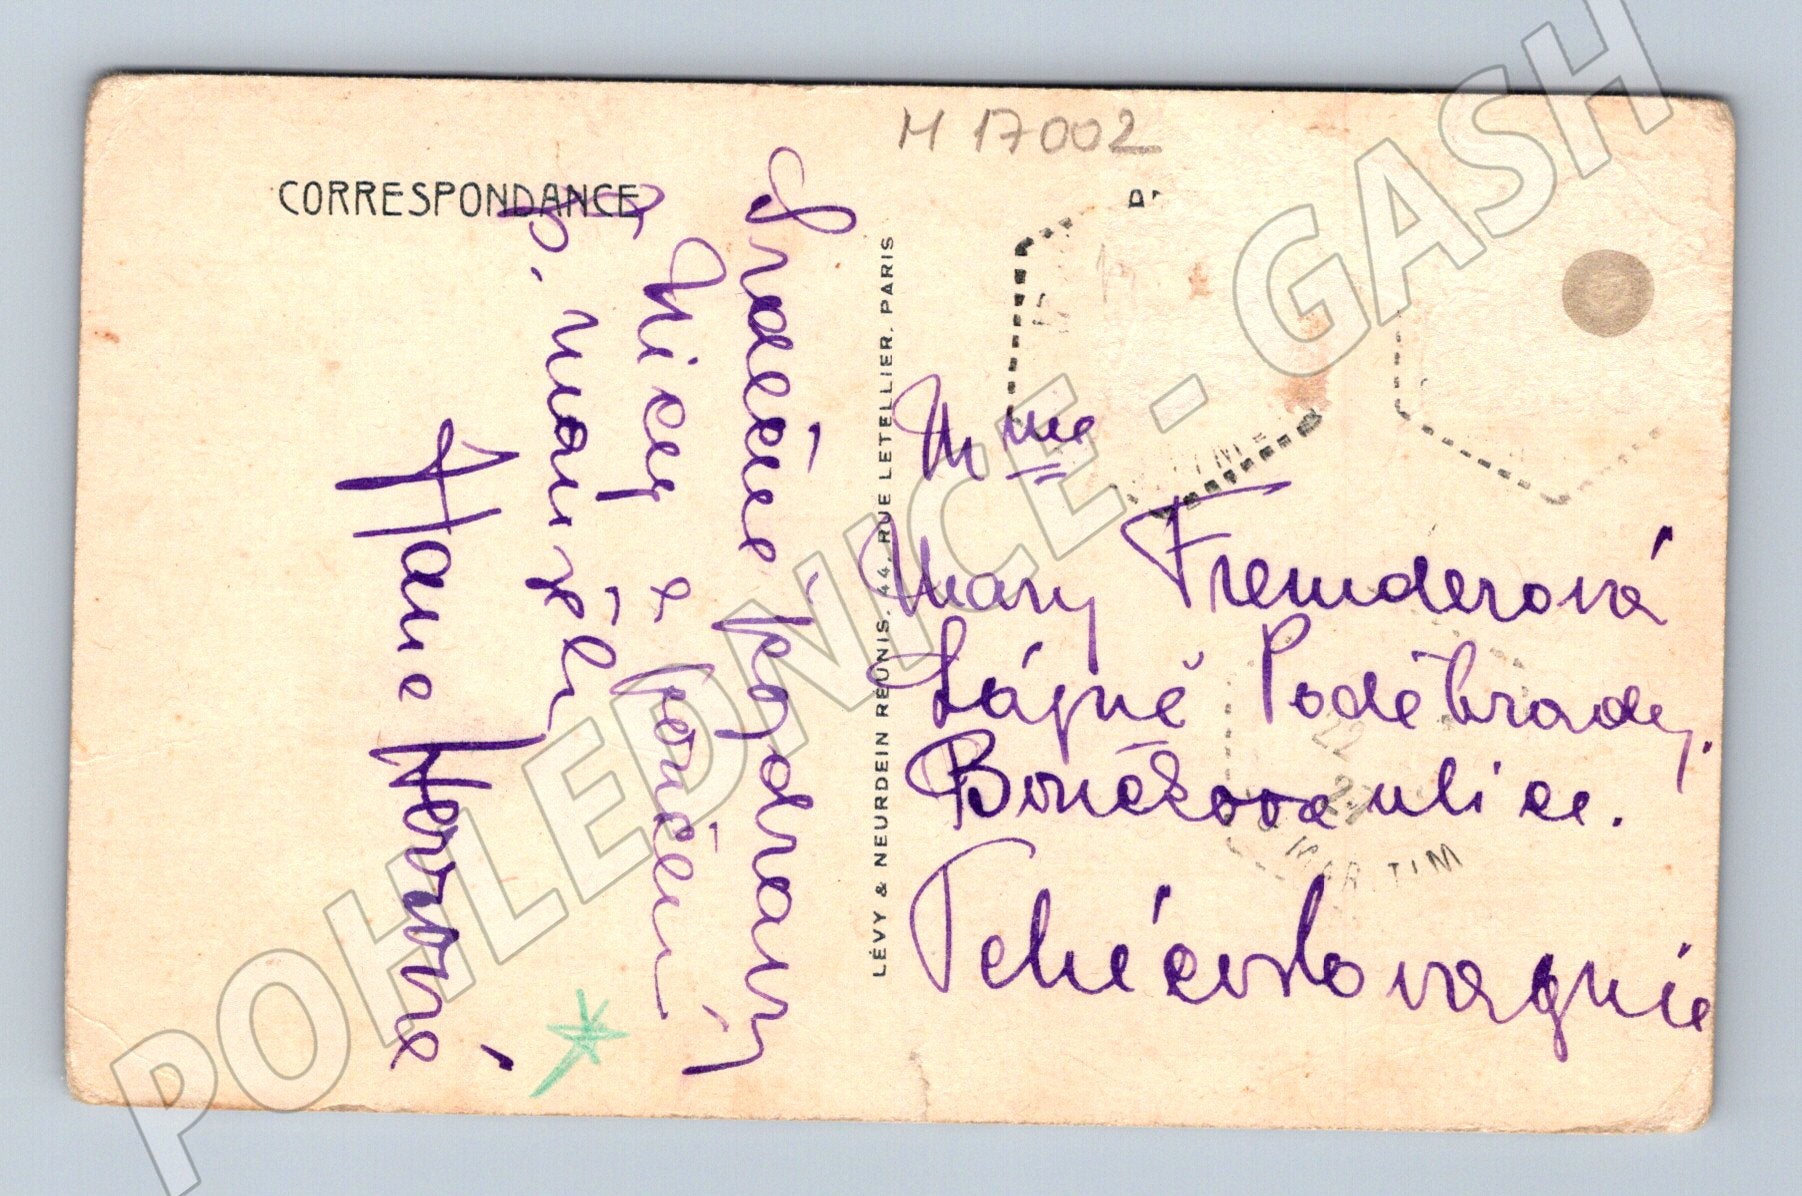 M 17002
CORRESPONDANCE
Srdečné pozdravy
z Nicey a poručení
p. manželi
Hana
LÉVY & NEURDEIN RÉUNIS, 44, RUE LETELLIER, PARIS
Mme
Mary Fremderová
Lázně Poděbrady.
ulice.
Tchécoslovaquie
22
MARITIM
POHLEDNICE - GASH